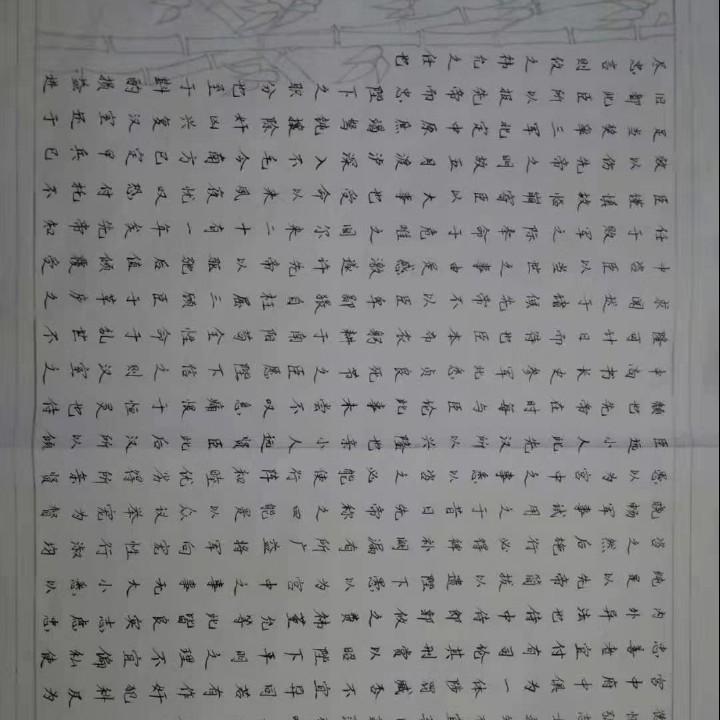 宫中府中俱为一体陟罚臧否不宜异同若有作奸犯科及为
忠善者宜付有司论其刑赏以昭陛下平明之理不宜偏私使
内外异法也侍中侍郎郭攸之费祎董允等此皆良实志虑忠
纯是以先帝简拔以遗陛下愚以为宫中之事事无大小悉以
咨之然后施行必得裨补阙漏有所广益将军向宠性行淑均
晓畅军事试用之于昔日先帝称之曰能是以众议举宠为督
愚以为宫中之事悉以咨之必能使行阵和睦优劣得所亲贤
臣远小人此先汉所以兴隆也亲小人远贤臣此后汉所以倾
颓也先帝在时每与臣论此事未尝不叹息痛恨于桓灵也侍
中尚书长史参军此悉贞良死节之臣愿陛下信之则汉室之
隆可计日而待也臣本布衣躬耕于南阳苟全性命于乱世不
求闻达于诸侯先帝不以臣卑鄙猥自枉屈三顾臣于草庐之
中咨臣以当世之事由是感激遂许先帝以驱驰后值倾覆受
任于败军之际奉命于危难之间尔来二十有一年矣先帝知
臣谨慎故临崩寄臣以大事也受命以来夙夜忧叹恐付托不
效以伤先帝之明故五月渡泸深入不毛今南方已定甲兵已
足当奖率三军北定中原庶竭驽钝攘除奸凶兴复汉室还于
旧都此臣所以报先帝而忠陛下之职分也至于斟酌损益进
尽忠言则攸之祎允之任也